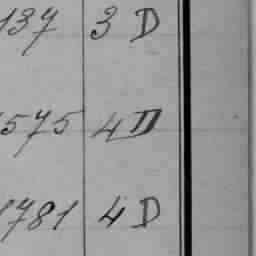 137 3 D
1575 4 D
1781 4 D